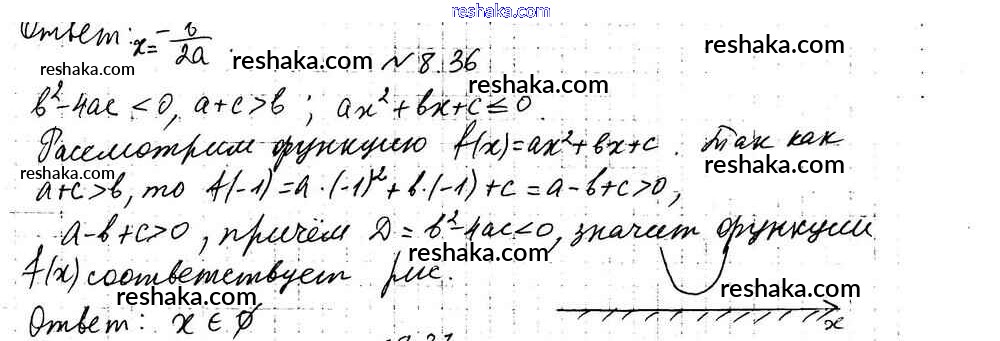 reshaka.com
Ответ: x = -b/2a reshaka.com №8.36 reshaka.com
reshaka.com reshaka.com
b²-4ac < 0, a+c>b ; ax²+bx+c ≤ 0
Рассмотрим функцию f(x)=ax²+bx+c. Так как
reshaka.com reshaka.com
a+c>b, то f(-1)=a·(-1)²+b·(-1)+c = a-b+c>0,
reshaka.com
a-b+c>0, причём D = b²-4ac<0, значит функции
reshaka.com
f(x) соответствует рис.
reshaka.com reshaka.com reshaka.com
Ответ: x ∈ ∅
x